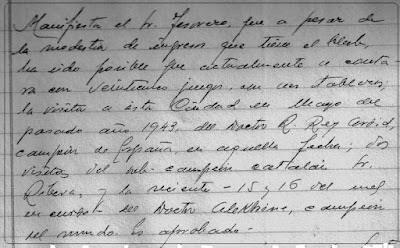 Manifiesta el Sr. Tesorero, que a pesar de
la modestia de ingresos que tiene el Club,
ha sido posible que actualmente se conta-
ra con veintiunos juegos, con sus tableros;
la visita a esta Ciudad en Mayo del
pasado año 1943, del Doctor R. Rey Ardid,
campeón de España en aquella fecha; dos
visitas del sub-campeón catalán Sr.
Ribera, y la reciente - 15 y 16 del mes
en curso - del Doctor Alekhine, campeón
del mundo. Es aprobado.-